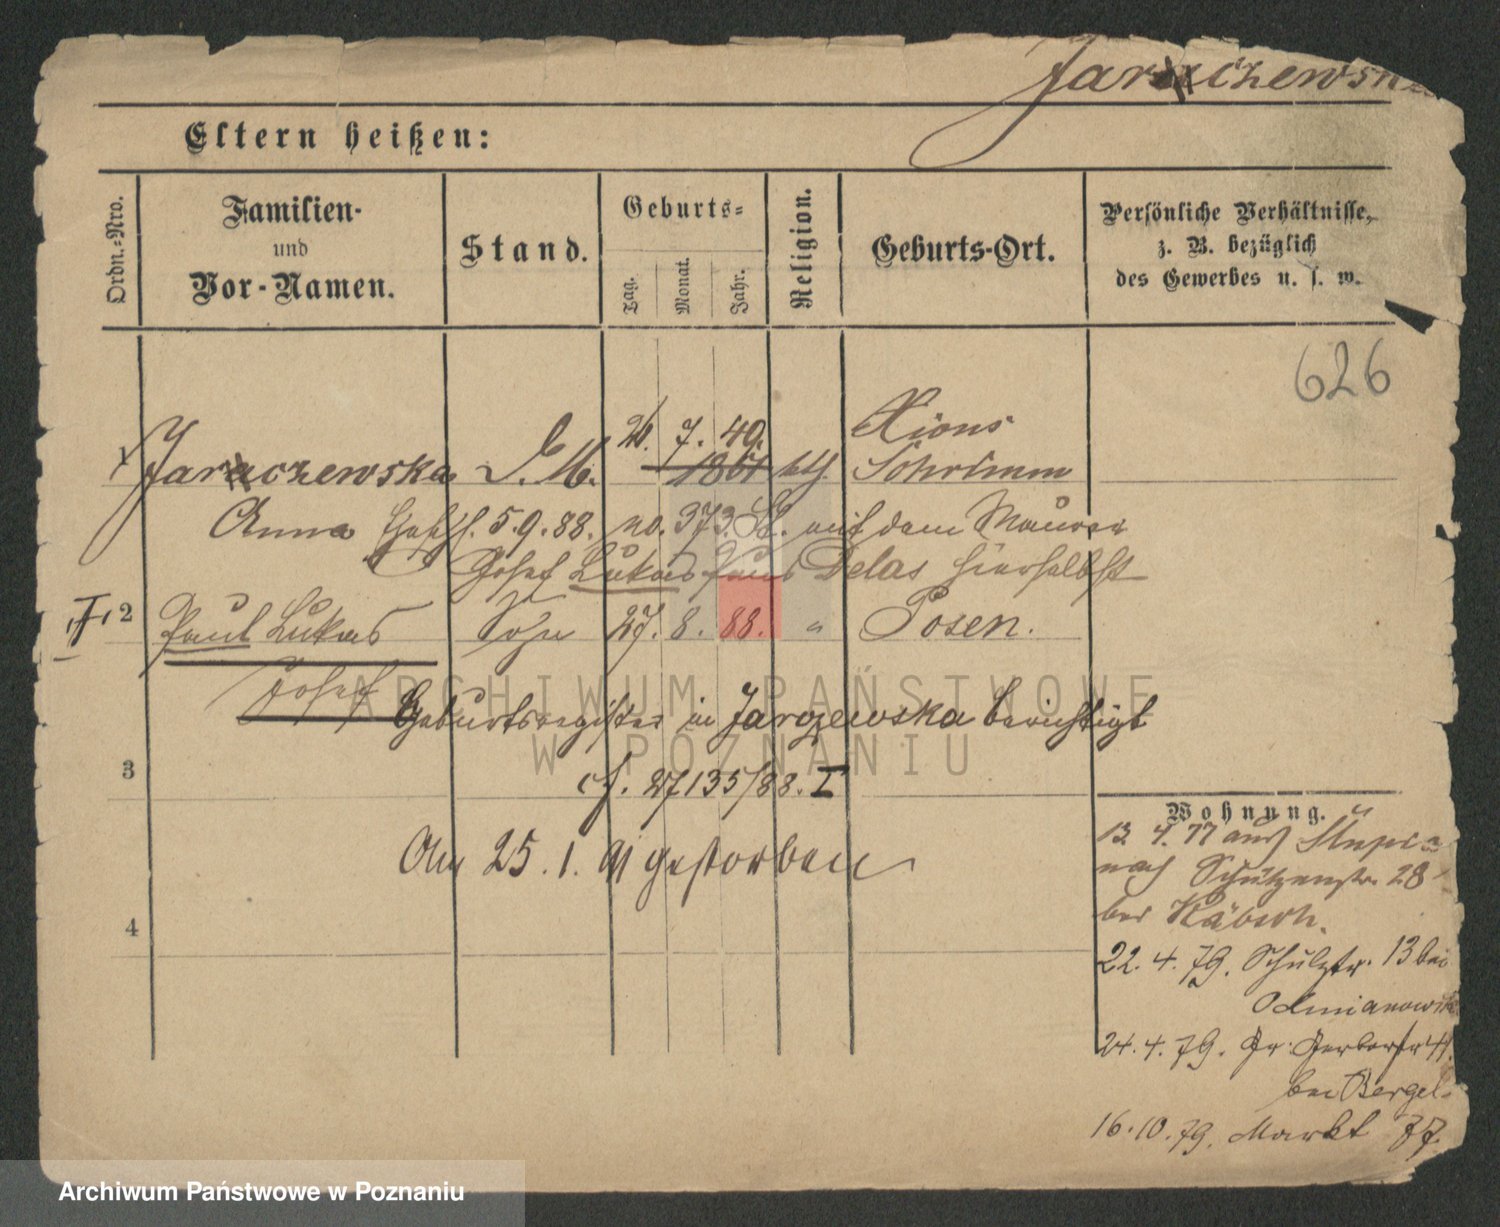 Jaraczewska
Eltern heißen:
Ordn.=Nro.
Familien-
und
Vor-Namen.
Stand.
Geburts=
Tag.
Monat.
Jahr.
Religion.
Geburts-Ort.
Persönliche Verhältnisse,
z. B. bezüglich
des Gewerbes u. s. w.
626
21. 7. 49. Xions
1 Jaraczewska D. M. 1861 kth. Schrimm
Anna 5.9.88. no. 373 mit dem Maurer
Josef Lukas Paul Delas hierselbst
2 Paul Lukas Sohn 27. 8. 88. " Posen.
Josef
Geburtsregister in Jarozewska berichtigt
3
cf. 27135/88. I
Am 25. 1. 91 gestorben
4
Wohnung.
13. 4. 77 aus
nach Schützenstr. 28
bei Käbsch.
22. 4. 79. Schulstr. 13 bei
24. 4. 79. Gr. Gerberstr
bei Bergel
16. 10. 79. Markt 77.
ARCHIWUM PAŃSTWOWE
W POZNANIU
Archiwum Państwowe w Poznaniu